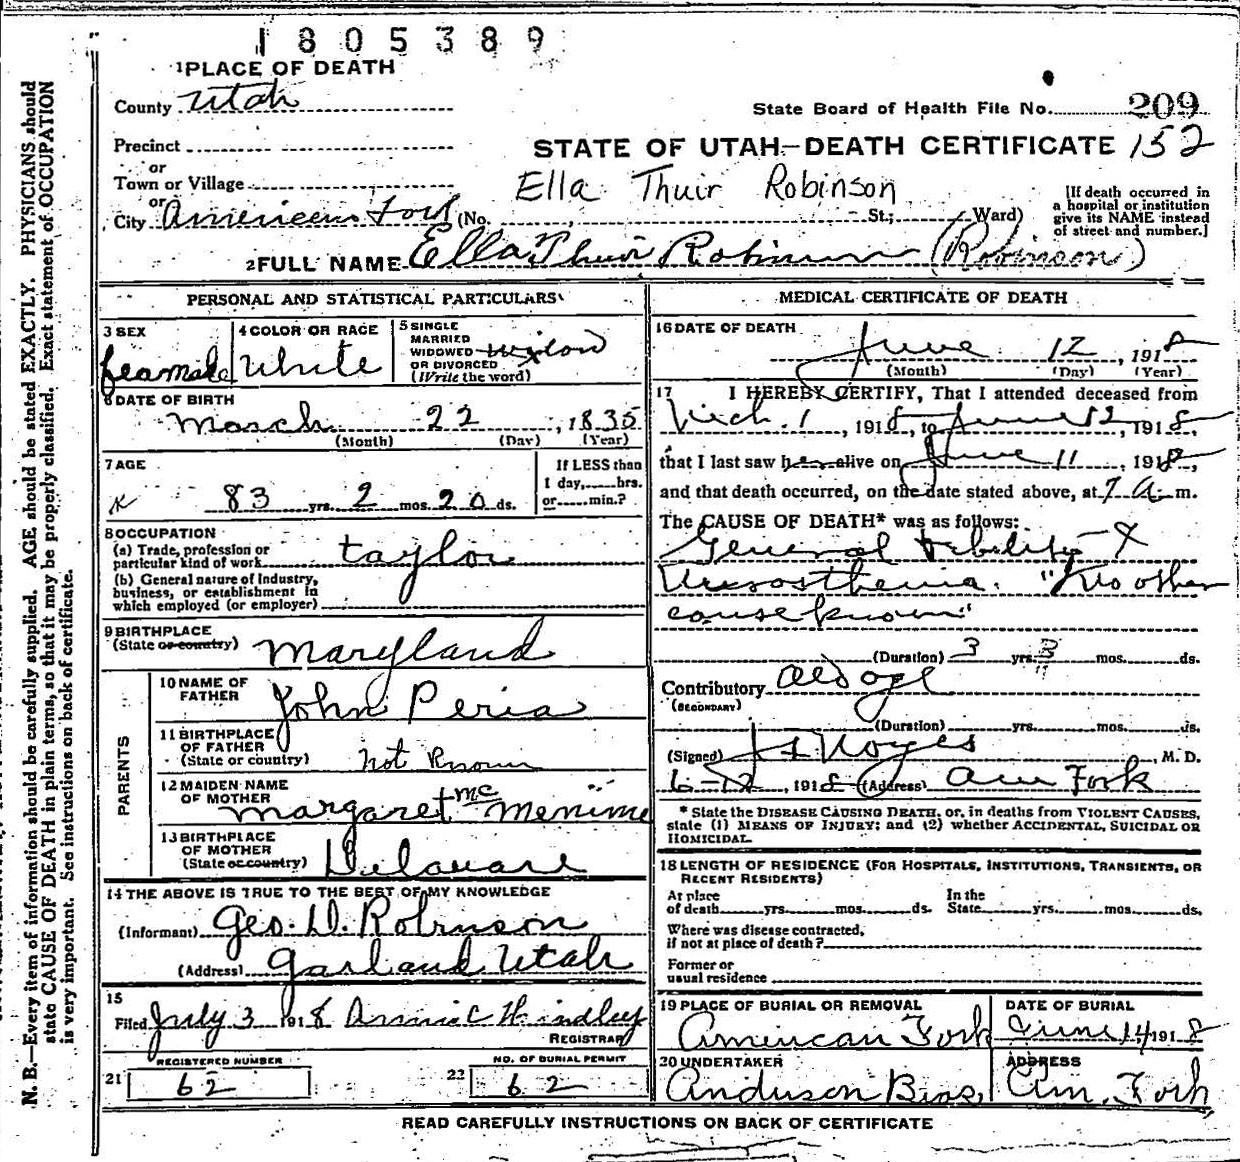 1805389
1 PLACE OF DEATH
County Utah
State Board of Health File No. 209
Precinct
STATE OF UTAH—DEATH CERTIFICATE 152
or
Town or Village
Ella Thuir Robinson
or
City American Fork (No. St.; Ward)
[If death occurred in
a hospital or institution
give its NAME instead
of street and number.]
2 FULL NAME Ella Thuir Robinson (Robinson)
PERSONAL AND STATISTICAL PARTICULARS
3 SEX
feamale
4 COLOR OR RACE
White
5 SINGLE
MARRIED
WIDOWED widow
OR DIVORCED
(Write the word)
6 DATE OF BIRTH
March 22, 1835
(Month) (Day) (Year)
7 AGE
83 yrs. 2 mos. 20 ds.
If LESS than
1 day, hrs.
or min.?
8 OCCUPATION
(a) Trade, profession or
particular kind of work taylor
(b) General nature of Industry,
business, or establishment in
which employed (or employer)
9 BIRTHPLACE
(State or country) Maryland
PARENTS
10 NAME OF
FATHER John Peria
11 BIRTHPLACE
OF FATHER
(State or country) Not Known
12 MAIDEN NAME
OF MOTHER Margaret Mc Menime
13 BIRTHPLACE
OF MOTHER
(State or country) Delaware
14 THE ABOVE IS TRUE TO THE BEST OF MY KNOWLEDGE
(Informant) Geo. D. Robinson
(Address) Garland Utah
15
Filed July 3 1918 Annie C Hindley
REGISTRAR
REGISTERED NUMBER
21 62
NO. OF BURIAL PERMIT
22 62
MEDICAL CERTIFICATE OF DEATH
16 DATE OF DEATH
June 12, 1918
(Month) (Day) (Year)
17 I HEREBY CERTIFY, That I attended deceased from
Mch. 1, 1918, to June 12, 1918,
that I last saw her alive on June 11, 1918,
and that death occurred, on the date stated above, at 7 A. m.
The CAUSE OF DEATH* was as follows:
General Debility &
"No other
cause known"
(Duration) 3 yrs. 3 mos. ds.
Contributory Old age
(SECONDARY)
(Duration) yrs. mos. ds.
(Signed) Noyes, M. D.
6-12, 1918 (Address) Am Fork
* State the DISEASE CAUSING DEATH, or, in deaths from VIOLENT CAUSES,
state (1) MEANS OF INJURY; and (2) whether ACCIDENTAL, SUICIDAL OR
HOMICIDAL.
18 LENGTH OF RESIDENCE (FOR HOSPITALS, INSTITUTIONS, TRANSIENTS, OR
RECENT RESIDENTS)
At place
of death yrs. mos. ds.
In the
State yrs. mos. ds.
Where was disease contracted,
if not at place of death?
Former or
usual residence
19 PLACE OF BURIAL OR REMOVAL
American Fork
DATE OF BURIAL
June 14 1918
20 UNDERTAKER
Anderson Bros.
ADDRESS
Am. Fork
READ CAREFULLY INSTRUCTIONS ON BACK OF CERTIFICATE
N. B.—Every item of information should be carefully supplied. AGE should be stated EXACTLY. PHYSICIANS should
state CAUSE OF DEATH in plain terms, so that it may be properly classified. Exact statement of OCCUPATION
is very important. See instructions on back of certificate.